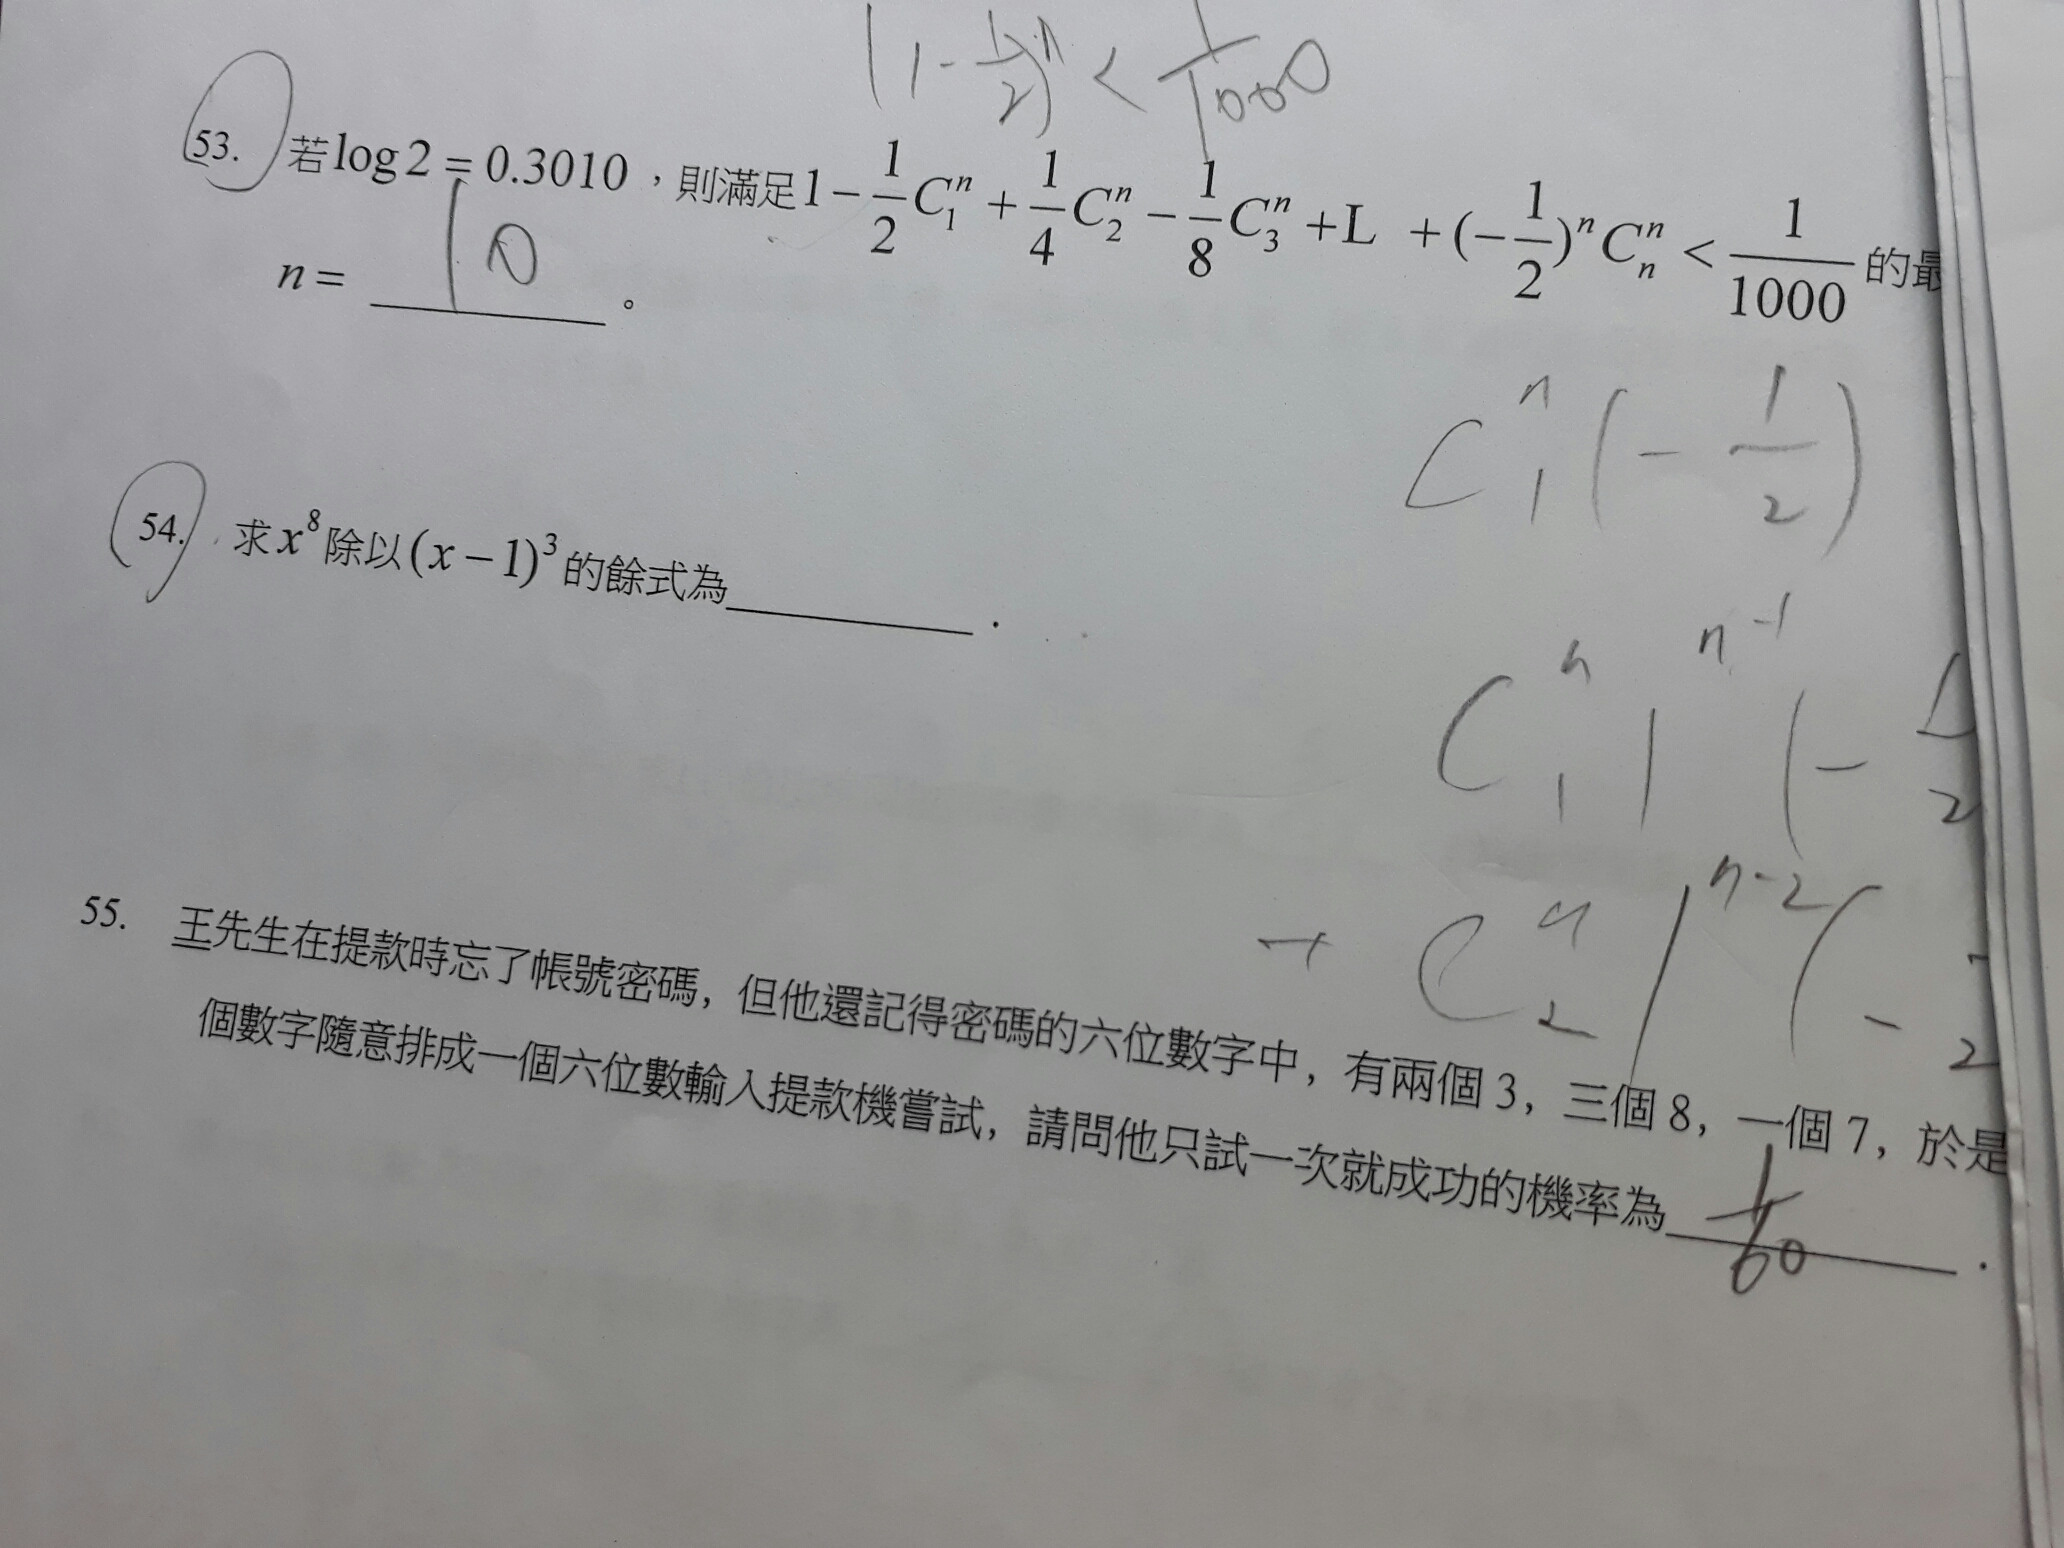 (1-1/2)^n < 1/1000
53. 若log2=0.3010,則滿足1-1/2 C_1^n+1/4 C_2^n-1/8 C_3^n+L +(-1/2)^n C_n^n<1/1000的最
n= 10 。
C_1^n (-1/2)
54. 求x^8除以(x-1)^3的餘式為____.
C_1^n 1^{n-1} (-1/2
+ C_2^n 1^{n-2} (-1/2
55. 王先生在提款時忘了帳號密碼,但他還記得密碼的六位數字中,有兩個3,三個8,一個7,於是
個數字隨意排成一個六位數輸入提款機嘗試,請問他只試一次就成功的機率為 1/60 .